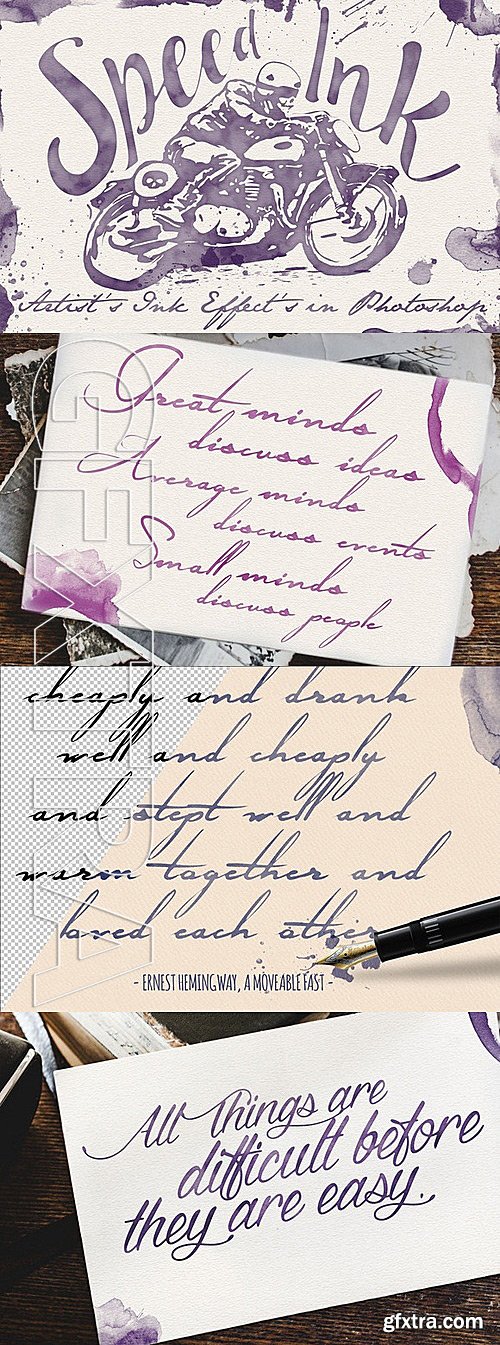 Speed Ink
Artist's Ink Effect's in Photoshop
Great minds
discuss ideas
Average minds
discuss events
Small minds
discuss people
cheaply and drank
well and cheaply
and slept well and
warm together and
loved each other
- ERNEST HEMINGWAY, A MOVEABLE FAST -
All Things are
difficult before
they are easy.
GFXTRA
gfxtra.com